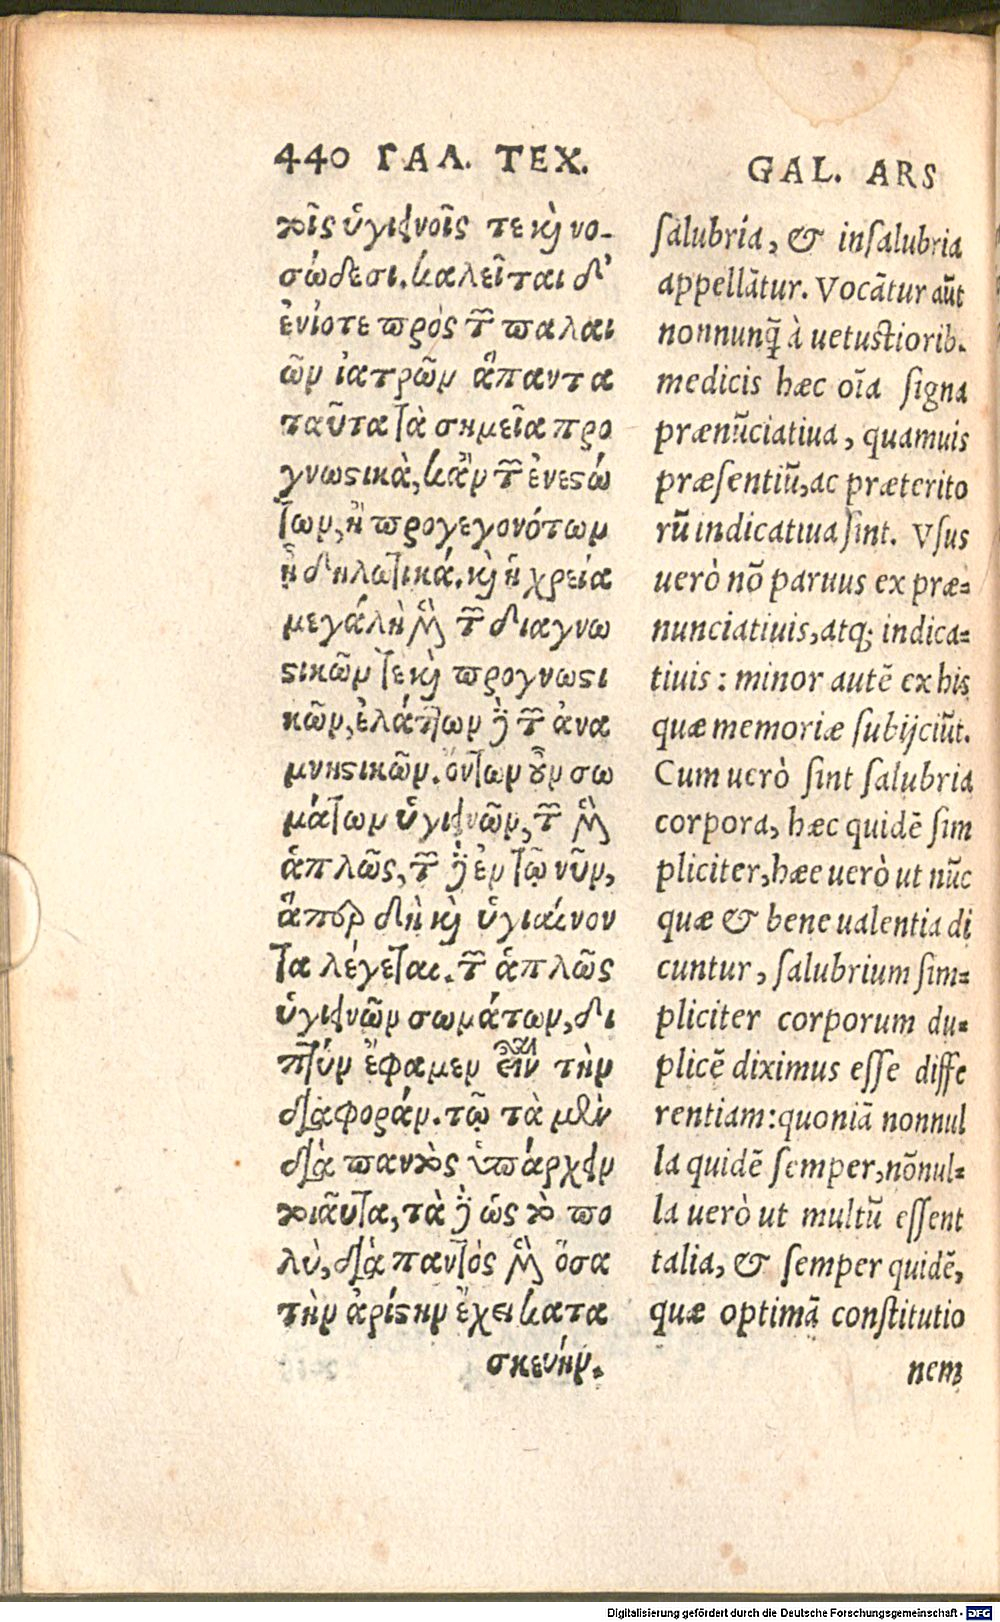 440 ΓΑΛ. ΤΕΧ.
τοῖς ὑγιεινοῖς τε καὶ νο-
σώδεσι. καλεῖται δ'
ἐνίοτε πρὸς τῶν παλαι
ῶν ἰατρῶν ἅπαντα
ταῦτα τὰ σημεῖα προ
γνωστικὰ, κἂν τῶν ἐνεστώ
των, ἢ προγεγονότων
ᾖ δηλωτικά. καὶ ἡ χρεία
μεγάλη μὲν τῶν διαγνω
στικῶν τε καὶ προγνωστι
κῶν, ἐλάττων δὲ τῶν ἀνα
μνηστικῶν. ὄντων οὖν σω
μάτων ὑγιεινῶν, τῶν μὲν
ἁπλῶς, τῶν δὲ ἐν τῷ νῦν,
ἅπερ δὴ καὶ ὑγιαίνον
τα λέγεται. τῶν ἁπλῶς
ὑγιεινῶν σωμάτων, δι
πτὴν ἔφαμεν εἶναι τὴν
διαφοράν. τῷ τὰ μὲν
διὰ παντὸς ὑπάρχειν
τοιαῦτα, τὰ δὲ ὡς τὸ πο
λὺ, διὰ παντὸς μὲν ὅσα
τὴν ἀρίστην ἔχει κατα
σκευήν.
GAL. ARS
salubria, & insalubria
appellātur. Vocātur aūt
nonnunq̄ à uetustiorib.
medicis hæc oīa signa
prænūciatiua, quamuis
præsentiū, ac præterito
rū indicatiua sint. Vsus
uerò nō paruus ex præ-
nunciatiuis, atq; indica-
tiuis: minor autē ex his
quæ memoriæ subijciūt.
Cum uerò sint salubria
corpora, hæc quidē sim
pliciter, hæc uerò ut nūc
quæ & bene ualentia di
cuntur, salubrium sim-
pliciter corporum du-
plicē diximus esse diffe
rentiam: quoniā nonnul
la quidē semper, nōnul-
la uerò ut multū essent
talia, & semper quidē,
quæ optimā constitutio
nem
Digitalisierung gefördert durch die Deutsche Forschungsgemeinschaft - DFG